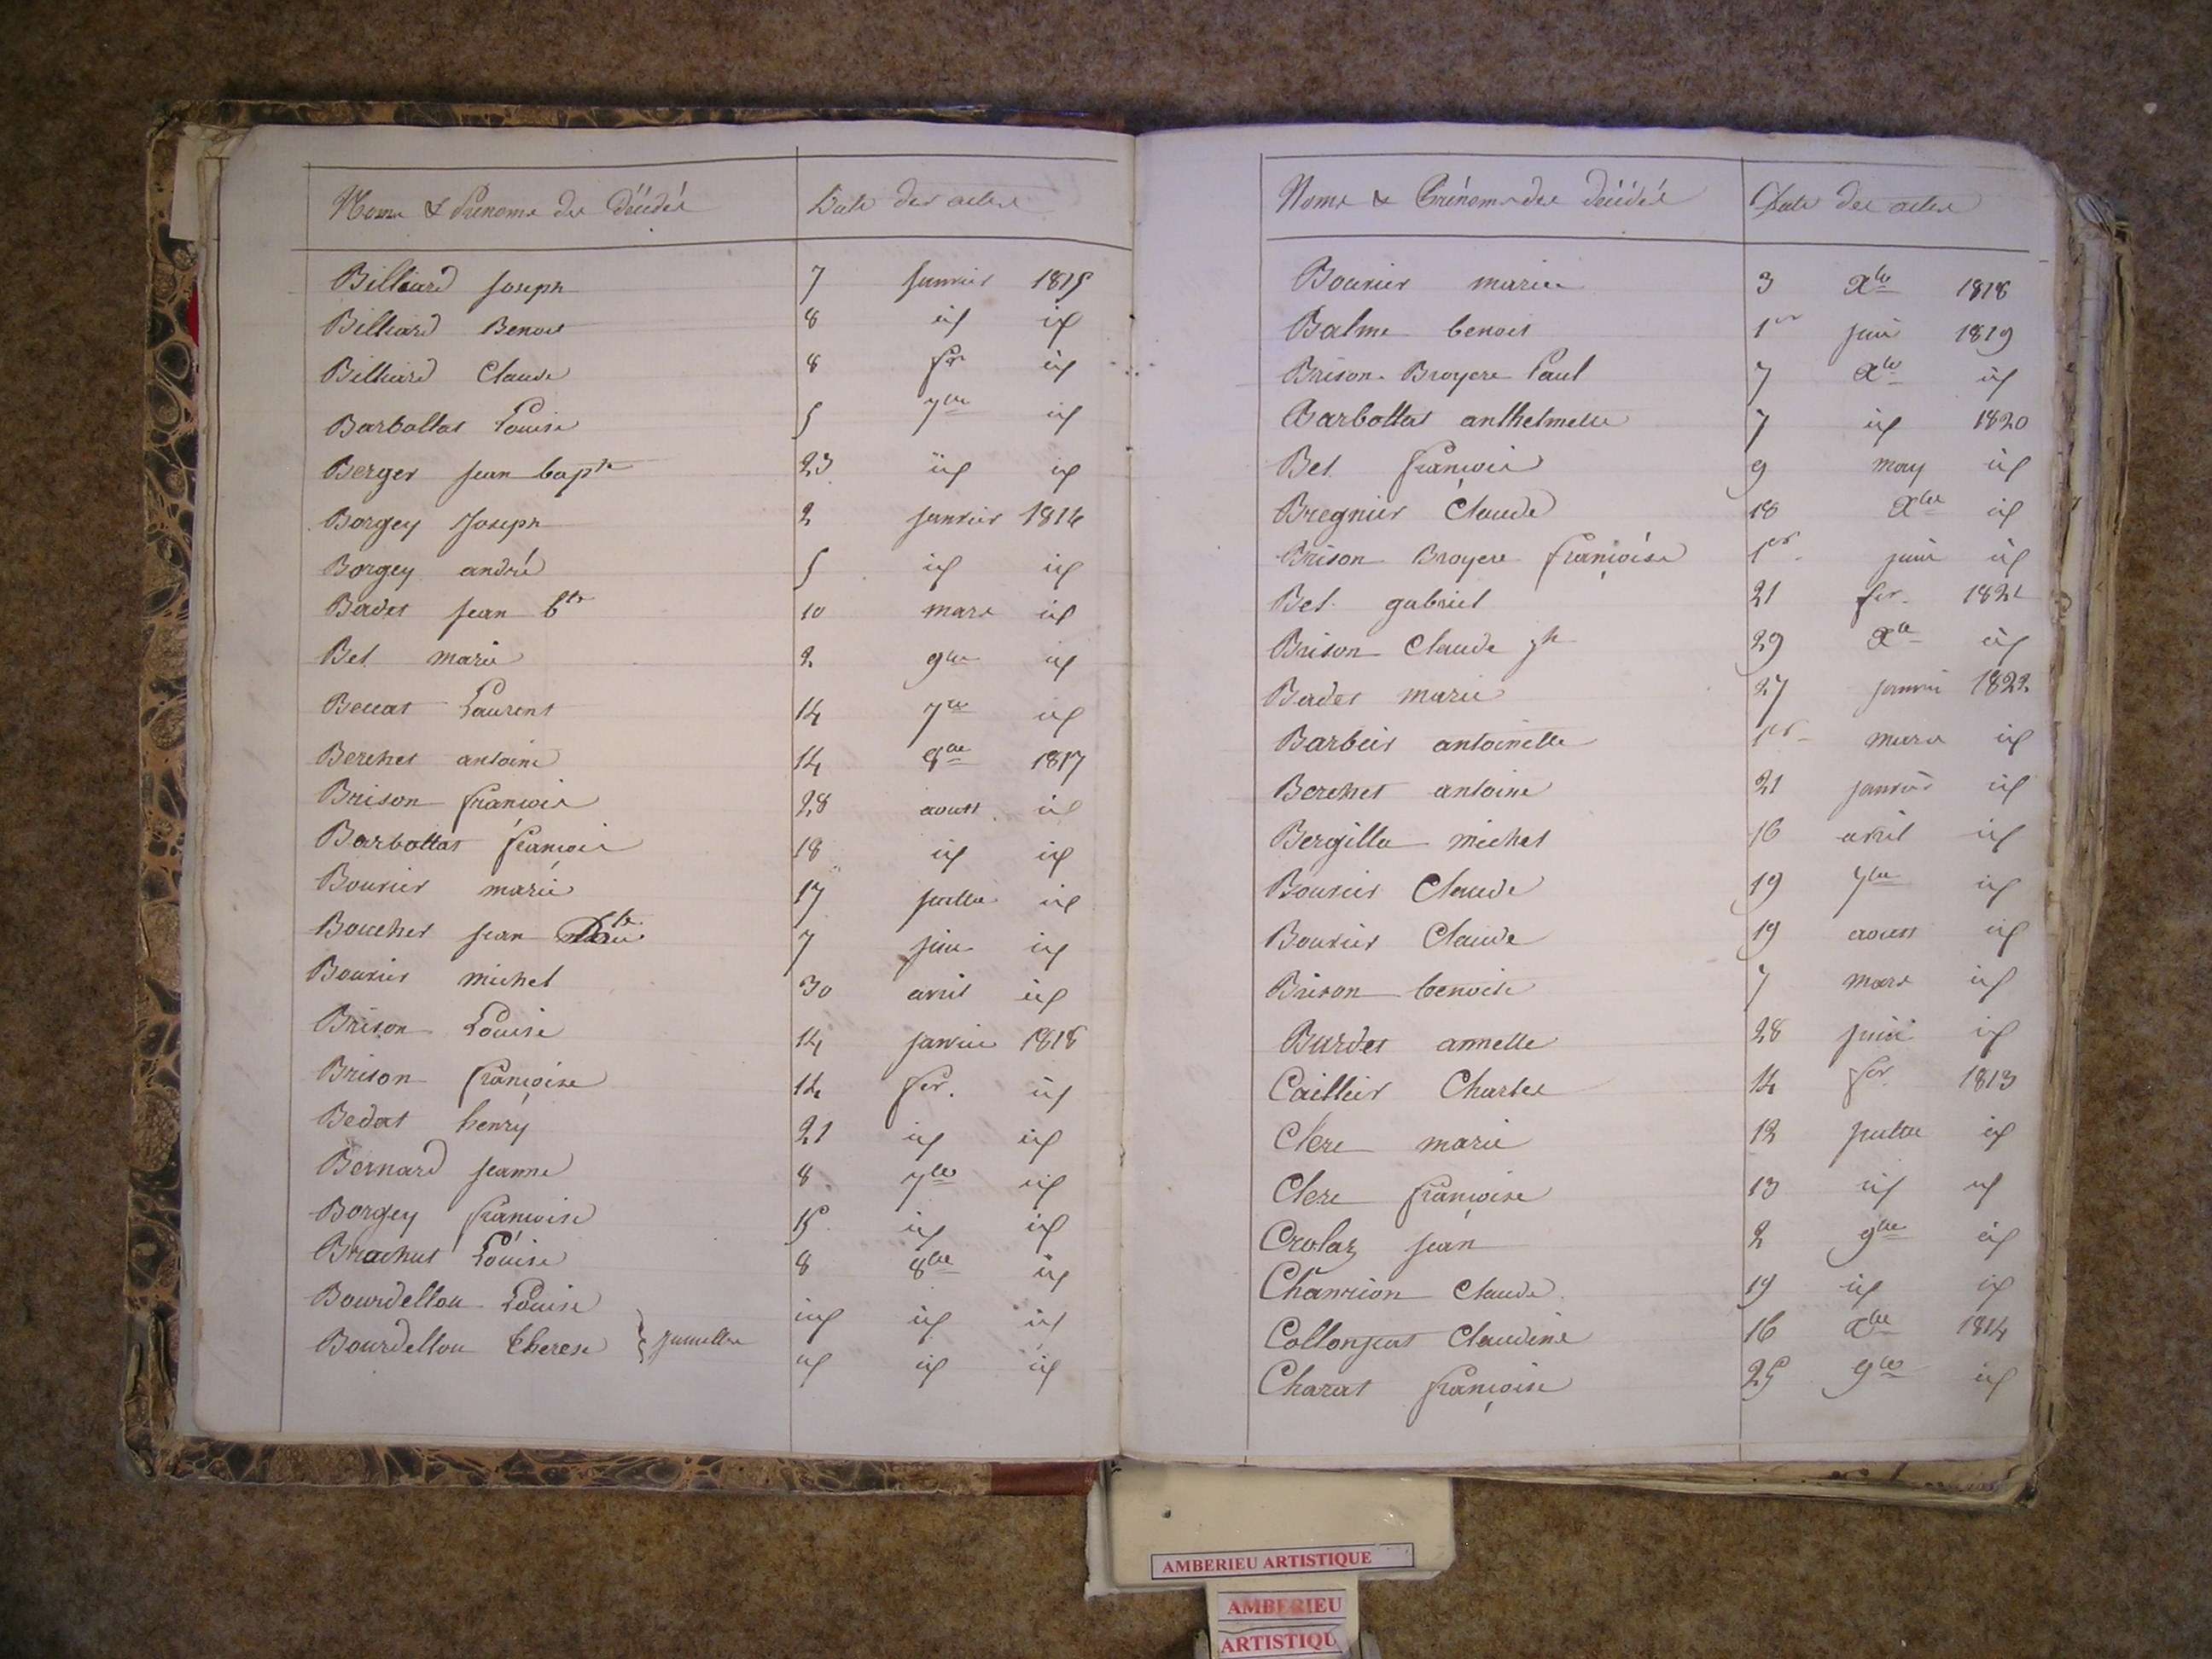 Noms & Prénoms des décédés Date des actes
Billiard Joseph 7 Janvier 1815
Billiard Benoit 8 id id
Billiard Claude 8 fer id
Barbottat Louise 5 7bre id
Berger jean bapte 23 id id
Borgey Joseph 2 janvier 1816
Borgey andré 5 id id
Badet jean bte 10 mars id
Bel marie 2 9bre id
Beccat Laurent 14 7bre id
Berchet antoine 14 8bre 1817
Brison françois 28 aoust id
Barbottat françois 18 id id
Bouvier marie 17 juillet id
Boucher jean Bte 7 juin id
Bouvier michel 30 avril id
Brison Louise 14 janvier 1818
Brison françoise 14 fer. id
Bedat henry 21 id id
Bernard jeanne 8 7bre id
Borgey françoise 15 id id
Brachet Louise 8 8bre id
Bourdellon Louise id id id
Bourdellon therese } jumelles id id id
Noms & Prénoms des décédés Date des actes
Bouvier marie 3 Xbre 1818
Balme benoit 1er juin 1819
Brison-Broyere Paul 7 Xbre id
Barbottat anthelmette 7 id 1820
Bel françois 9 may id
Bregnier Claude 18 Xbre id
Brison Broyere françoise 1er juin id
Bel gabriel 21 fer. 1821
Brison Claude jh 29 Xbre id
Badet marie 27 janvier 1822
Barbier antoinette 1er mars id
Berchet antoine 21 janvier id
Bergilla michel 16 avril id
Bouvier Claude 19 7bre id
Bouvier Claude 19 aoust id
Brison benoite 7 mars id
Burdet annette 28 juin id
Caillier Charles 14 fer. 1813
Clerc marie 12 juillet id
Clerc françoise 13 id id
Crolaz jean 2 9bre id
Chanrion Claude 19 id id
Collonjeat Claudine 16 Xbre 1814
Charat françoise 25 9bre id
AMBERIEU ARTISTIQUE
AMBERIEU
ARTISTIQU